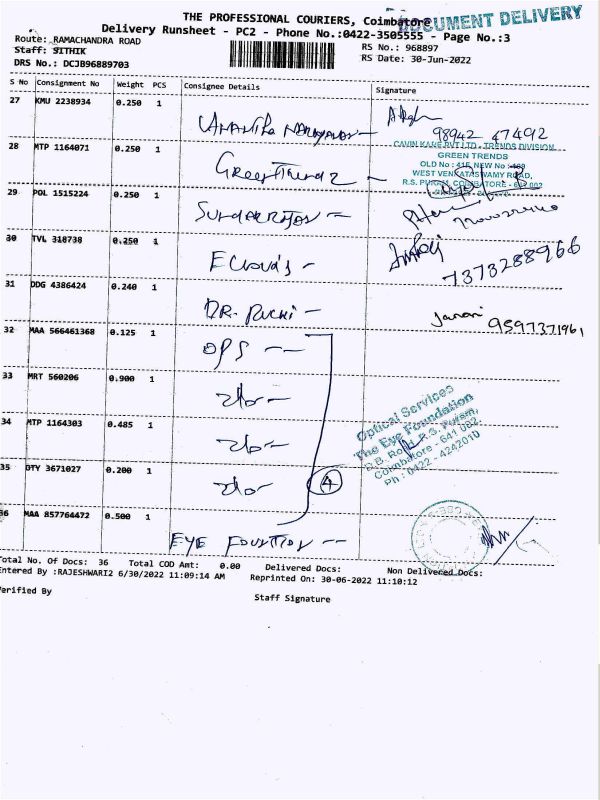 THE PROFESSIONAL COURIERS, Coimbatore
DOCUMENT DELIVERY
Delivery Runsheet - PC2 - Phone No.:0422-3505555 - Page No.:3
Route: RAMACHANDRA ROAD
RS No.: 968897
Staff: SITHIK
RS Date: 30-Jun-2022
DRS No.: DCJB96889703
S No Consignment No Weight PCS Consignee Details Signature
27 KMU 2238934 0.250 1
98942 47492
28 MTP 1164071 0.250 1 Green Trendz
CAVIN KARE PVT LTD - TRENDS DIVISION
GREEN TRENDS
OLD No : 415, NEW No :
WEST VENKATASWAMY ROAD,
R.S. PURAM, COIMBATORE - 641 002
29 POL 1515224 0.250 1
30 TVL 318738 0.250 1
7373288966
31 DDG 4386424 0.240 1 DR. Ruchi -
Janani 9597371961
32 MAA 566461368 0.125 1 OPS --
33 MRT 560206 0.900 1
34 MTP 1164303 0.485 1
Optical Services
The Eye Foundation
D.B. Road, R.S. Puram,
Coimbatore - 641 002.
Ph : 0422 - 4242010
35 DTY 3671027 0.200 1
4
36 MAA 857764472 0.500 1 EYE
Total No. Of Docs: 36 Total COD Amt: 0.00 Delivered Docs: Non Delivered Docs:
Entered By :RAJESHWARI2 6/30/2022 11:09:14 AM Reprinted On: 30-06-2022 11:10:12
Verified By
Staff Signature